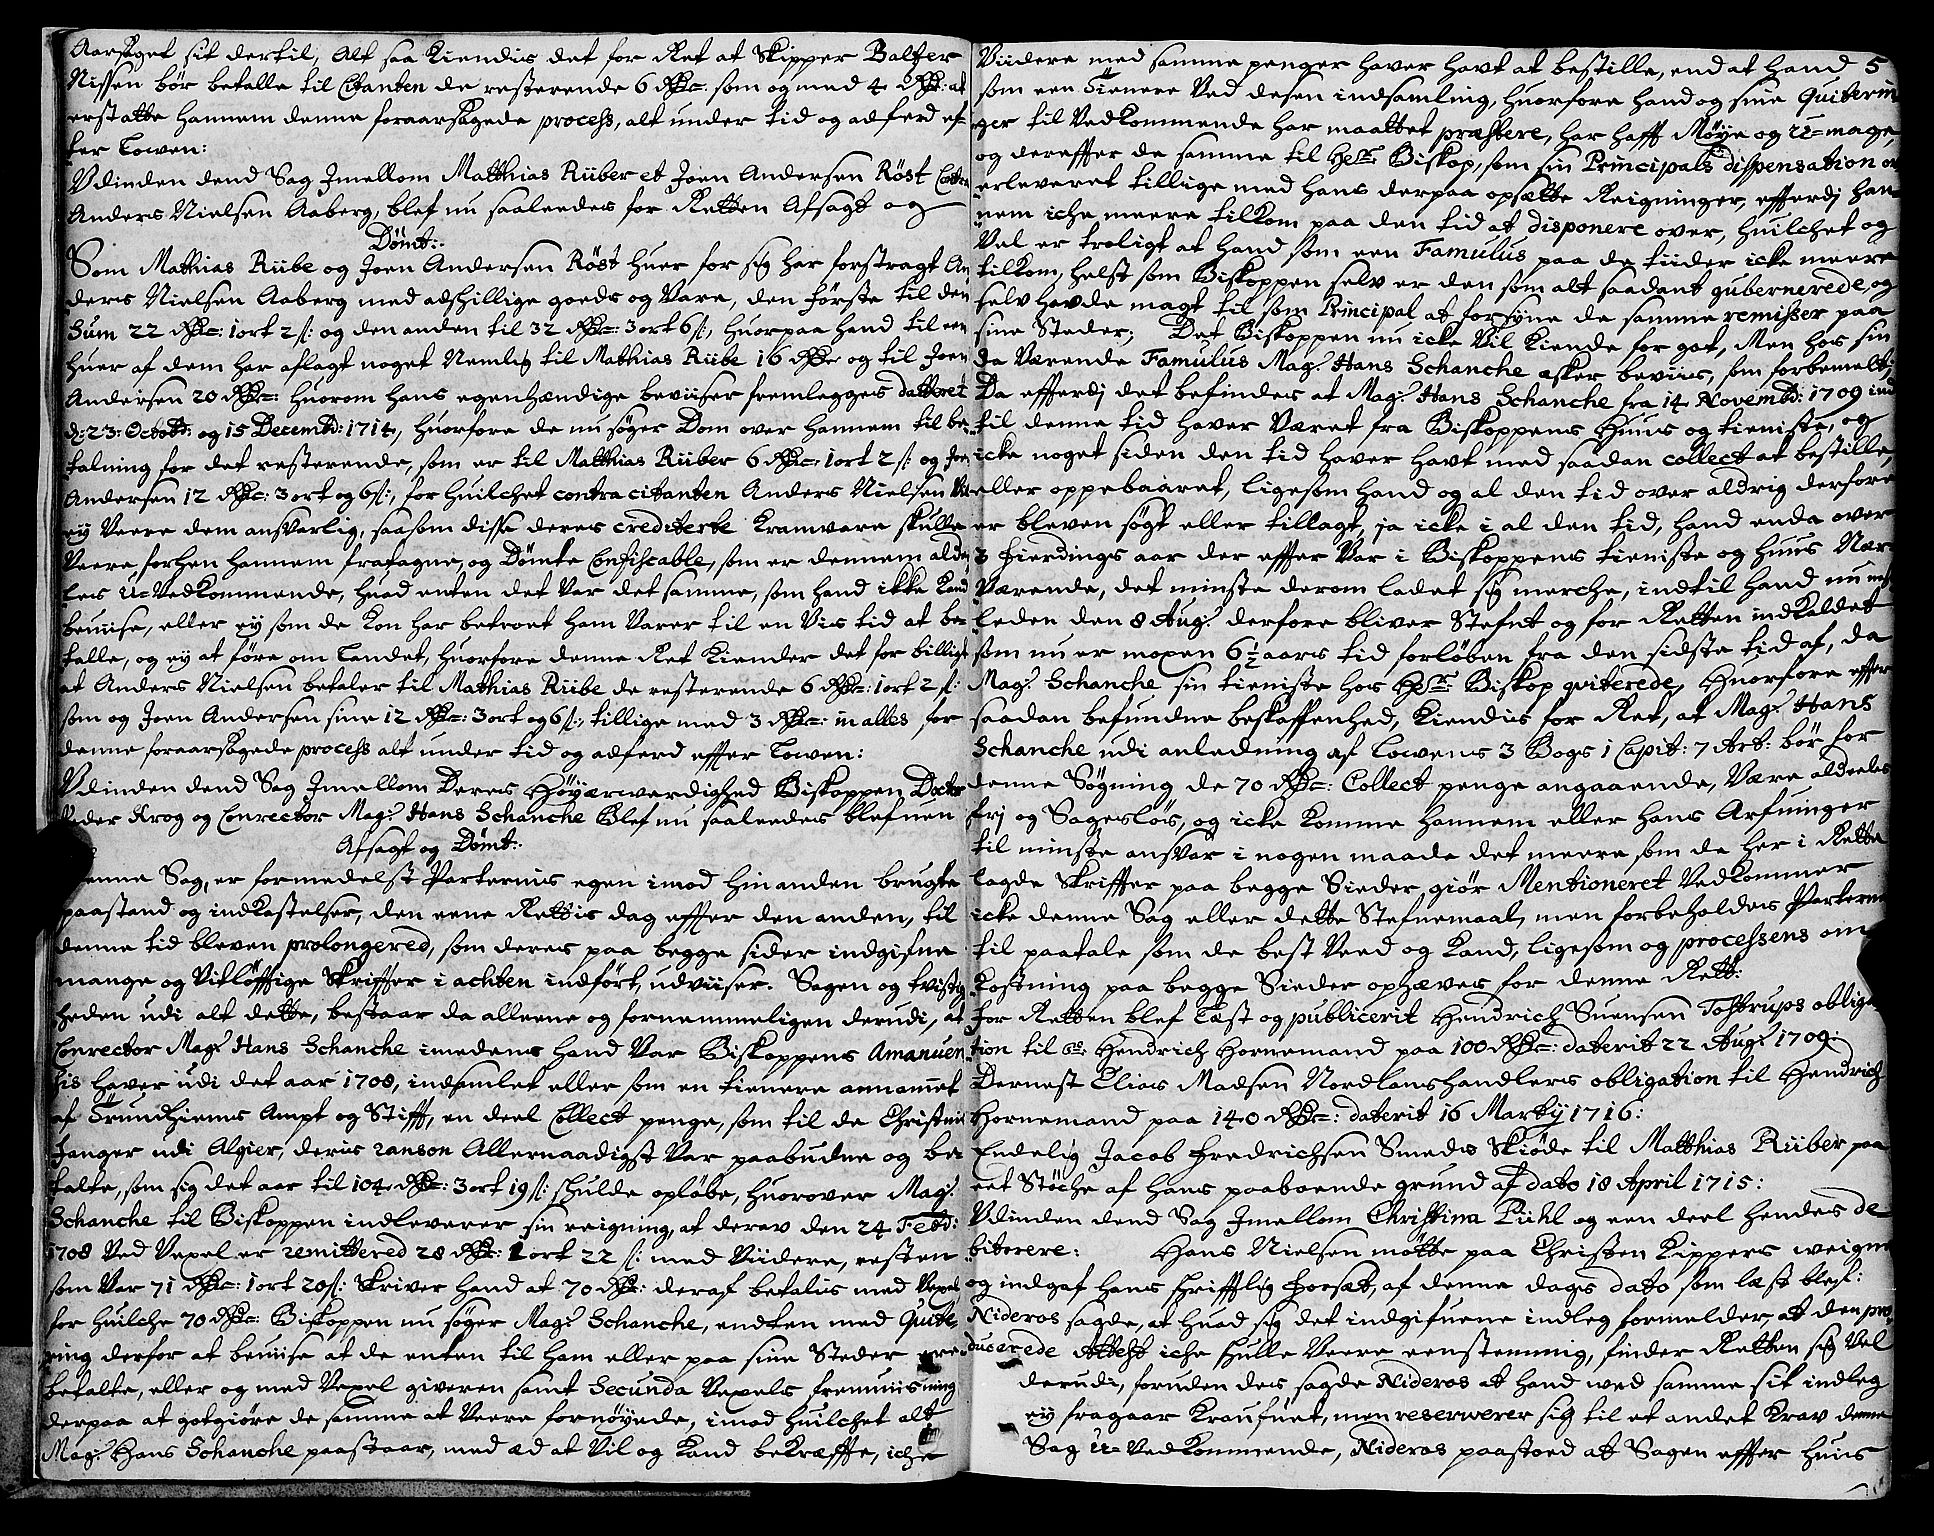 Aarsaget sit dertil, Alt saa Kiendis det for Ret at Skipper Baltzer
Nissen bør betalle til Citanten de resterende 6 Rdr: som og med 4 Rdr: at
erstatte hannem denne foraarsagede process, alt under tid og adferd ef-
ter Lowen:
Udinden dend Sag Jmellom Matthias Rüber et Joen Andersen Röst Contra
Anders Nielsen Aaberg, blef nu saaleedes for Retten Afsagt og
Dømt:
Som Mathias Rübe og Joen Andersen Röst huer for sig har forstragt An-
ders Nielsen Aaberg med adshillige goeds og Vare, den første til den
Sum 22 Rdr: 1 ort 2 s: og den anden til 32 Rdr: 3 ort 6 s:, huorpaa hand til een
huer af dem har aflagt noget Nemlig til Mathias Rübe 16 Rdr og til Joen
Andersen 20 Rdr: huorom hans egenhændige beviiser fremlegges datteret
d: 23: Octobr: og 15 Decembr: 1714, huorfore de nu søger Dom over hannem til be-
talning for det resterende, som er til Matthias Rüber 6 Rdr: 1 ort 2 s: og Joen
Andersen 12 Rdr: 3 ort og 6 s:, for huilchet contracitanten Anders Nielsen Vil
ey Veere dem ansvarlig, saasom disse deres crediterte Kramvare skulle
Veere forhen hannem fratagne, og Dømte Confiscable, som er dennem alde-
les u-Vedkommende, huad enten det Var det samme, som hand ikke Kand
beviise, eller ey som de Kon har betroet ham Varer til en Vis tid at be-
talle, og ey at føre om Landet, huorfore denne Ret Kiender det for billigt
at Anders Nielsen betaler til Mathias Rübe de resterende 6 Rdr: 1 ort 2 s:
som og Joen Andersen sine 12 Rdr: 3 ort og 6 s:, tillige med 3 Rdr: in alles, for
denne foraarsagede process alt under tid og adferd effter Lowen:
Udinden dend Sag Jmellom Deres Høyærwerdighed Biskoppen Doctor
Peder Krog og Conrector Mag: Hans Schanche Blef nu saaleedes blefuen
Afsagt og Dømt:
Denne Sag, er formedelst Parternis egen imod hinanden brugte
paastand og indkastelser, den eene Rettis dag effter den anden, til
denne tid bleven prolongered, som deres paa begge sider indgifne
mange og Vitløfftige Skriffter i achten indført, udviiser. Sagen og tvistig-
heden udi alt dette, bestaar da alleene og fornemmeligen derudi, at
Conrector Mag: Hans Schanche imedens hand Var Biskoppens Amanuen-
sis haver udi det aar 1708, indsamlet eller som en tienere annammet
af Trundhiems Ampt og Stifft, en deel Collect penge, som til de Christne
fanger udi Algier, deris ranson Allernaadigst Var paabudne og be-
talte, som sig det aar til 104 Rdr: 3 ort 19 s: shulde opløbe, huorover Mag:
Schanche til Biskoppen indleverer sin reigning, at derav den 24 Febr:
1708 Ved Vexel er remittered 28 Rdr: 1 ort 22 s: med Viidere, resten
som Var 71 Rdr: 1 ort 20 s: Skriver hand at 70 Rdr: deraf betalis med Vexel
for huilche 70 Rdr: Biskoppen nu søger Mag: Schanche, endten med Quite-
ring derfor at beviise at de enten til ham eller paa sine Steder ere
betalte, eller og med Vexel giveren samt Secunda Vexels fremviisning
derpaa at gotgiøre de samme at Veere fornøyede, imod huilchet alt
Mag: Hans Schanche paastaar, med æd at Vil og Kand bekræffte, iche
Viidere med samme penger haver havt at bestille, end at hand 5
som een Tienere Ved desen indsamling, huorfore hand og sine Quiterin-
ger til Vedkommende har maattet præstere, har hafft Møye og u-mage,
og dereffter de samme til Hr: Biskop, som sin Principals dispensation ov-
erleveret tillige med hans derpaa opsatte Reigninger, efferdj han-
nem iche meere tilkom paa den tid at disponere over, huilchet og
Vel er troligt at hand som een Famulus paa de tiider icke meere
tilkom, helst som Biskoppen selv er den som alt saadant gubernerede, og
selv havde magt til som Principal at forsyne de samme remisser paa
sine Steder; Det Biskoppen nu icke Vil Kiende for got, Men hos sin
da Værende Famulus Mag: Hans Schanche æsker beviis, som forbemelt;
Da efferdj det befindes at Mag: Hans Schanche fra 14 Novembr: 1709 ind
til denne tid haver Været fra Biskoppens Huus og tieniste, og
icke noget siden den tid haver havt med saadan collect at bestille,
eller oppebaaret, ligesom hand og al den tid over aldrig derfore
er bleven søgt eller tillagt, ja icke i al den tid, hand enda over
3 fierdings aar der effter Var i Biskoppens tieniste og huus Nær-
Værende, det minste derom ladet sig merche, indtil hand nu
leden den 8 Aug: derfore bliver Stefnt og for Retten indkaldet
som nu er moxen 6 1/2 aars tid forløben fra den sidste tid af, da
Mag: Schanche sin tieniste hos Hr: Biskop qviterede, Huorfore effter
saadan befundne beskaffenhed, Kiendis for Ret, at Mag: Hans
Schanche udi anledning af Lowens 3 Bogs 1 Capit: 7 Art: bør for
denne Søgning de 70 Rdr: Collect penge angaaende, Være aldeeles
frj og Sagesløs, og icke komme hannem eller hans Arfuinger
til minste ansvar i nogen maade det meere som de her i Rette
lagde Skriffter paa begge Sieder giør Mentioneret Vedkommer
icke denne Sag eller dette Stefnemaal, men forbeholdes Parterne
til paatale som de best Veed og Kand, ligesom og processens om-
kostning paa begge Sieder ophæves for denne Rett:
for Retten blef Læst og publicerit Hendrich Suensen Tostrups obliga-
tion til Sr: Hendrich Hornemand paa 100 Rdr: daterit 22 Aug: 1709:
Dernest Elias Madsen Nordlandshandlers obligation til Hendrich
Hornemand paa 140 Rdr: daterit 16 Martij 1716:
Endelig Jacob Fredrichsen Smeds Skiøde til Matthias Rüber paa
eet Støche af hans paaboende grund af dato 18 April 1715:
Udinden dend Sag Jmellom Christina Pihl og een deel hendes de-
bitorere: Hans Nielsen møtte paa Christen Kippers weigne
og indgaf hans shrifftlig forsæt, af denne dags dato som læst blef:
Nideros sagde, at huad sig det indgifuene indleg formelder, at den pro-
ducerede Attest iche shulle Veere eenstemmig, finder Retten sig Vel
derudi, foruden des sagde Nideros at hand wed samme sit indleg
ey fragaar Kraufuet, men reserwerer sig til et andet Krav denne
Sag u-Vedkommende, Nideros paastoed at Sagen effter huus